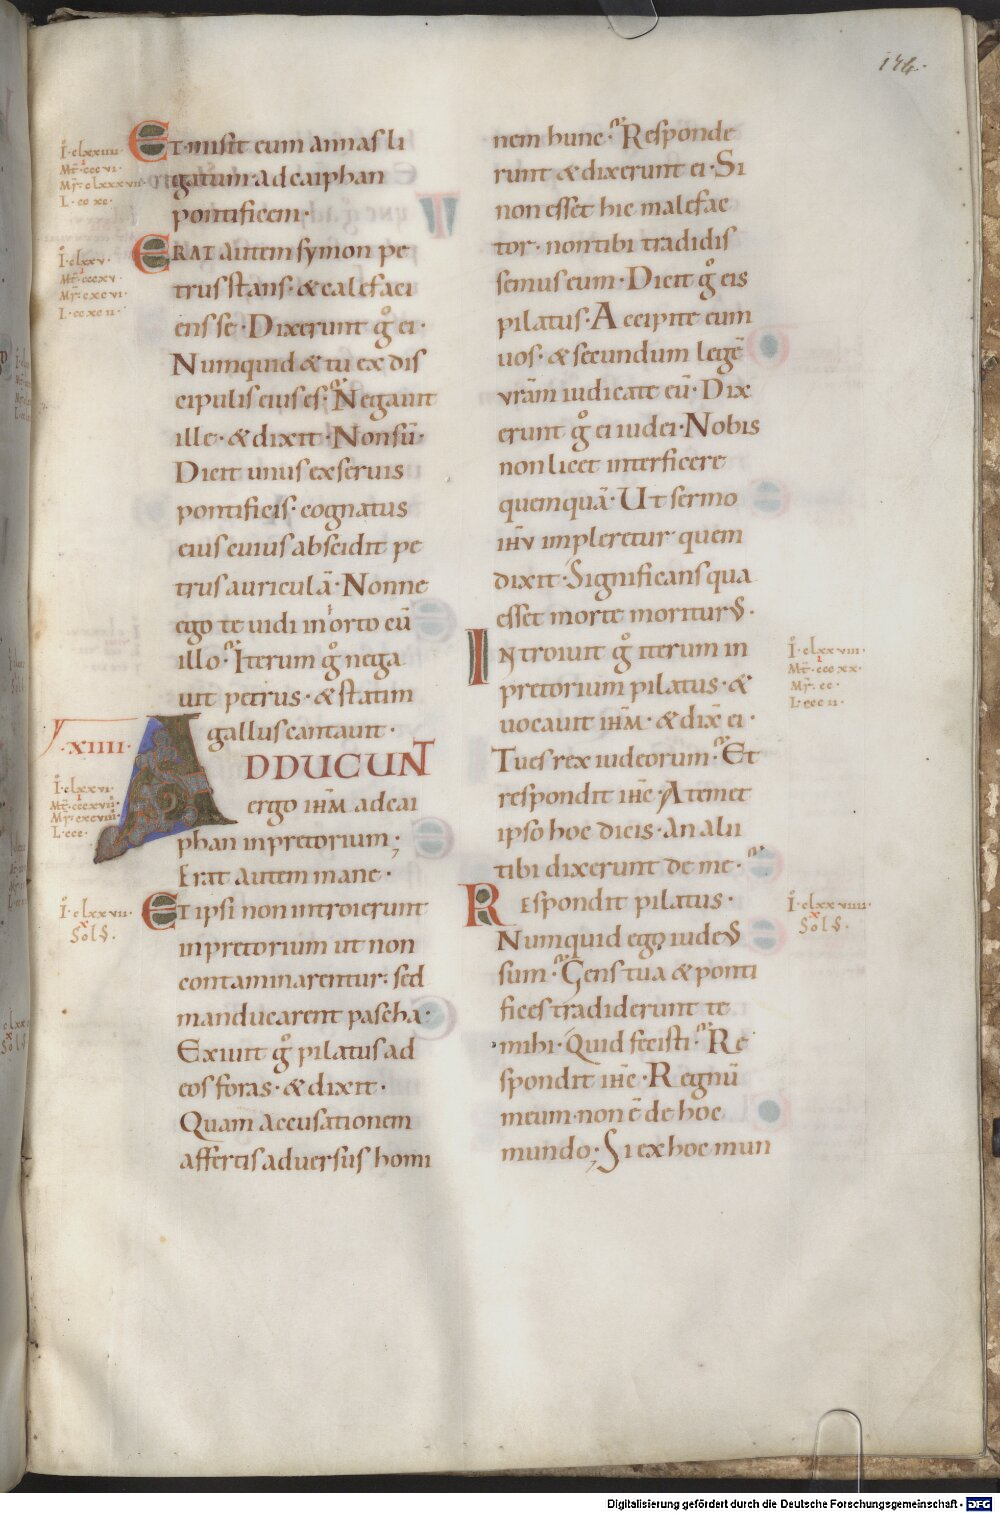 174.
I·clxxiiii·
Mt̄·cccvi·
Mr̄·clxxxvii·
L·ccxc·
Et misit eum annas li
gatum ad caiphan
pontificem·
I·clxxv·
Mt̄·cccxv·
Mr̄·cxcvi·
L·ccxcii·
ERAT autem symon pe
trus stans· & calefaci
ens se· Dixerunt gͦ ei·
Numquid & tu ex dis
cipulis eius es· Negauit
ille· & dixit· Non sū·
Dicit unus ex seruis
pontificis· cognatus
eius cuius abscidit pe
trus auriculā· Nonne
ego te uidi in orto cū
illo· Iterum gͦ nega
uit petrus· & statim
gallus cantauit·
·XIIII·
I·clxxvi·
Mt̄·cccxvii·
Mr̄·cxcviii·
L·ccc·
ADDUCUNT
ergo ihm̄ ad cai
phan in pretorium;
Erat autem mane·
I·clxxvii·
Sol⁹·
Et ipsi non introierunt
in pretorium ut non
contaminarentur· sed
manducarent pascha·
Exiuit gͦ pilatus ad
eos foras· & dixit·
Quam accusationem
affertis aduersus homi
nem hunc· Responde
runt & dixerunt ei· Si
non esset hic malefac
tor· non tibi tradidis
semus eum· Dicit gͦ eis
pilatus· Accipite eum
uos· & secundum legē
vr̄am iudicate eū· Dix
erunt gͦ ei iudei· Nobis
non licet interficere
quemquā· Ut sermo
ihv̄ impleretur quem
dixit· Significans qua
esset morte moritur⁹·
Introiuit gͦ iterum in
pretorium pilatus· &
uocauit ihm̄· & dix̄ ei·
I·clxxviii·
Mt̄·cccxx·
Mr̄·cc·
L·cccii·
Tu es rex iudeorum· Et
respondit ihc̄· A temet
ipso hoc dicis· an alii
tibi dixerunt de me·
Respondit pilatus·
I·clxxviiii·
Sol⁹·
Numquid ego iude⁹
sum· Gens tua & ponti
fices tradiderunt te
mihi· Quid fecisti· Re
spondit ihc̄· Regnū
meum· non ē de hoc
mundo; Si ex hoc mun
Digitalisierung gefördert durch die Deutsche Forschungsgemeinschaft - DFG